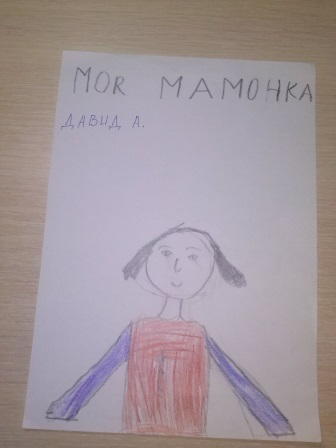 МОЯ МАМОЧКА
ДАВИД А.